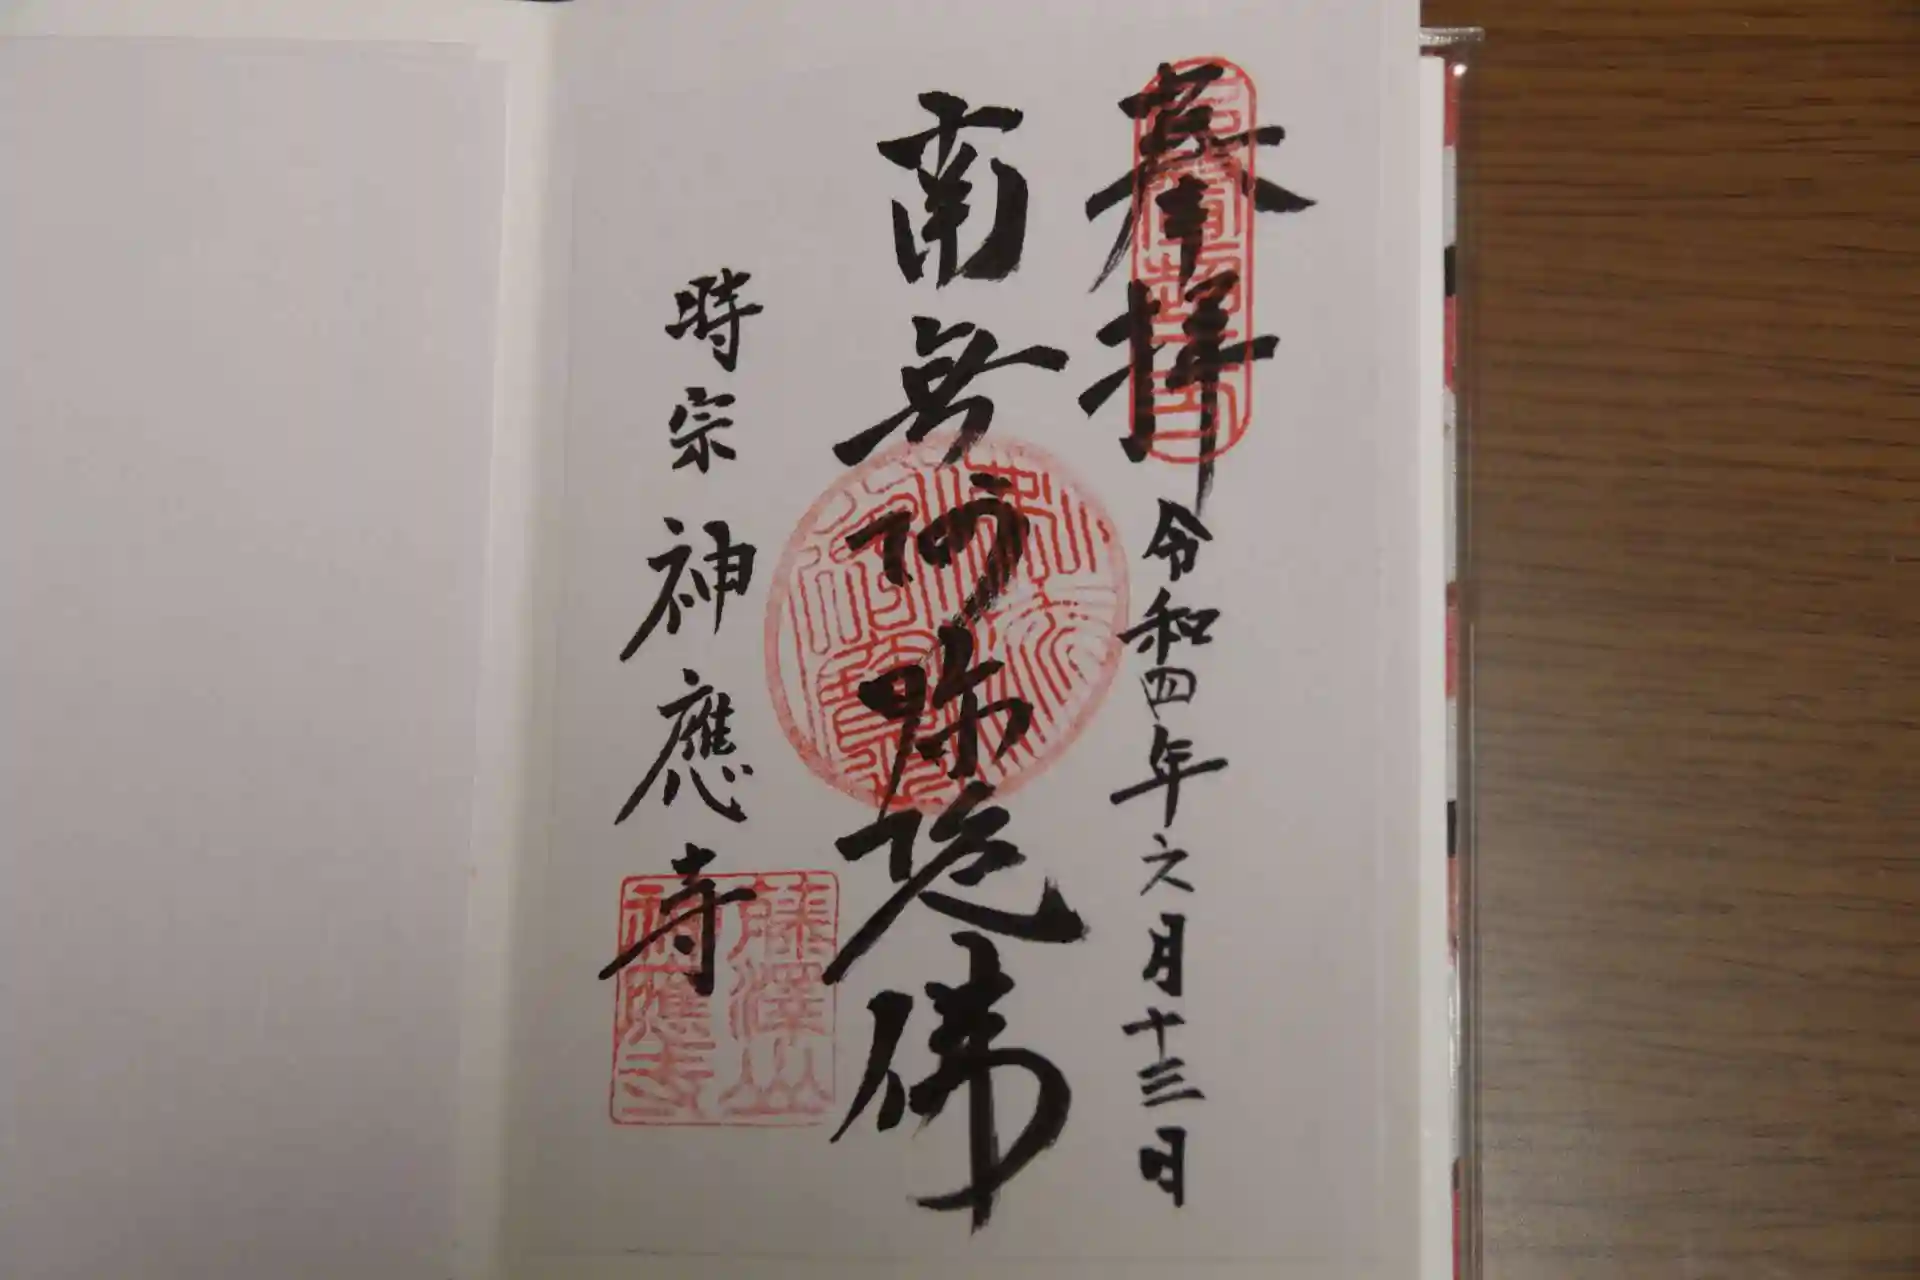 奉拜
令和四年六月十三日
南無阿弥陀佛
時宗 神應寺
藤澤山
神應寺